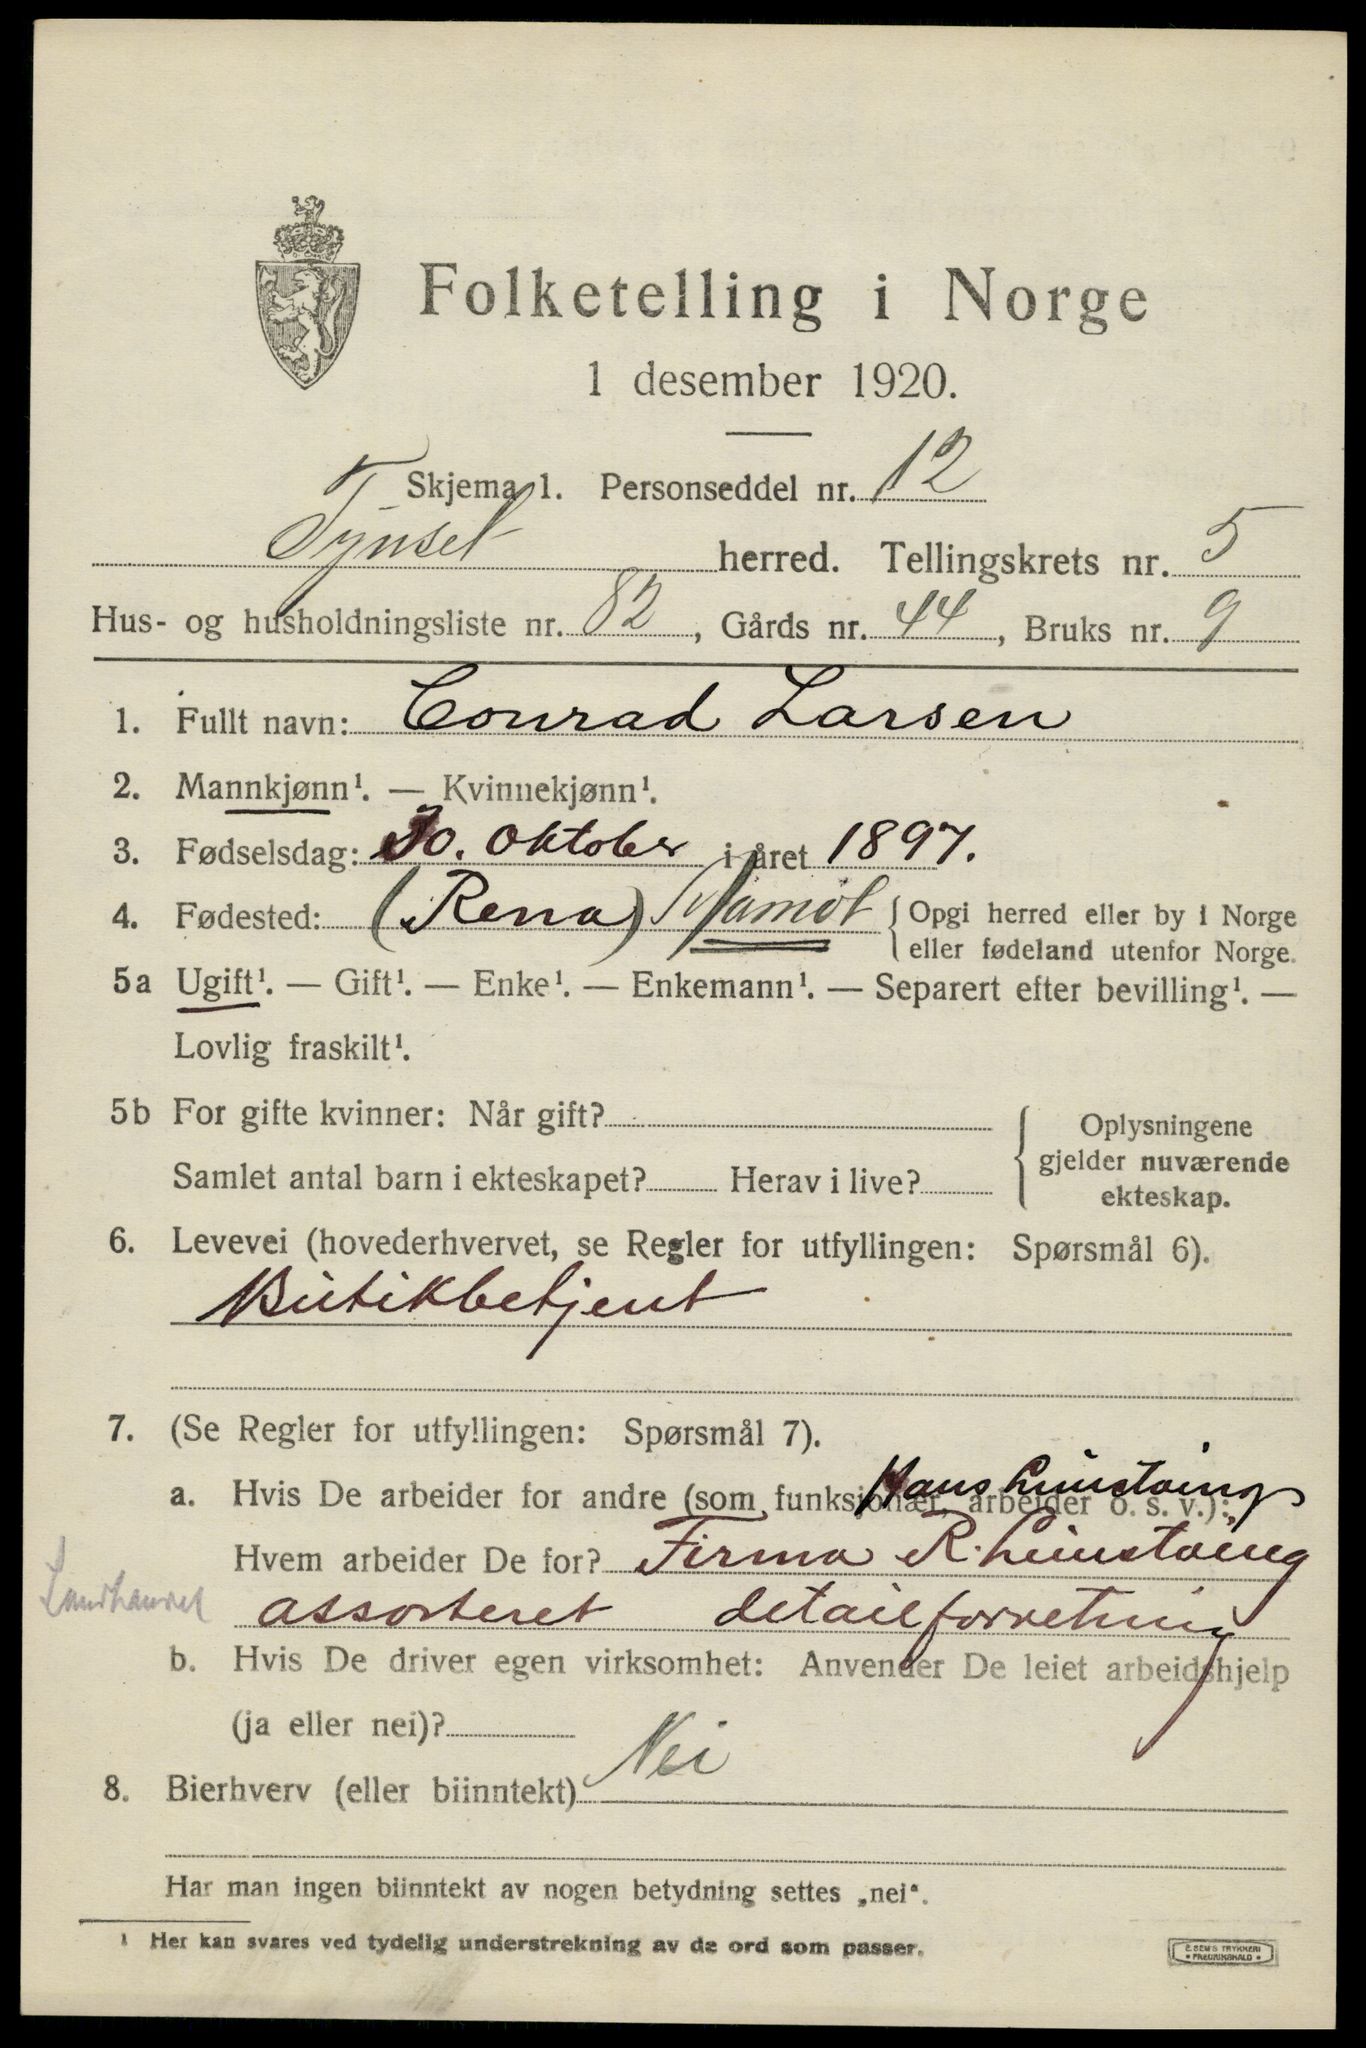 Folketelling i Norge
1 desember 1920.
Skjema 1. Personseddel nr. 12
Tynset herred. Tellingskrets nr. 5
Hus- og husholdningsliste nr. 82, Gårds nr. 44, Bruks nr. 9
1. Fullt navn: Conrad Larsen
2. Mannkjønn¹. — Kvinnekjønn¹.
3. Fødselsdag: 30. Oktober i året 1897.
4. Fødested: (Rena) Åmot { Opgi herred eller by i Norge
eller fødeland utenfor Norge.
5a Ugift¹. — Gift¹. — Enke¹. — Enkemann¹. — Separert efter bevilling¹. —
Lovlig fraskilt¹.
5b For gifte kvinner: Når gift?
Samlet antal barn i ekteskapet? Herav i live?
{ Oplysningene
gjelder nuværende
ekteskap.
6. Levevei (hovederhvervet, se Regler for utfyllingen: Spørsmål 6).
Butikbetjent
7. (Se Regler for utfyllingen: Spørsmål 7).
a. Hvis De arbeider for andre (som funksjonær, arbeider o. s. v.):
Hans
Hvem arbeider De for? Firma R.
Landhandel assorteret detailforretning
b. Hvis De driver egen virksomhet: Anvender De leiet arbeidshjelp
(ja eller nei)?
8. Bierhverv (eller biinntekt) Nei
Har man ingen biinntekt av nogen betydning settes „nei“.
¹ Her kan svares ved tydelig understrekning av de ord som passer.
E. SEM'S TRYKKERI
• FREDRIKSHALD •